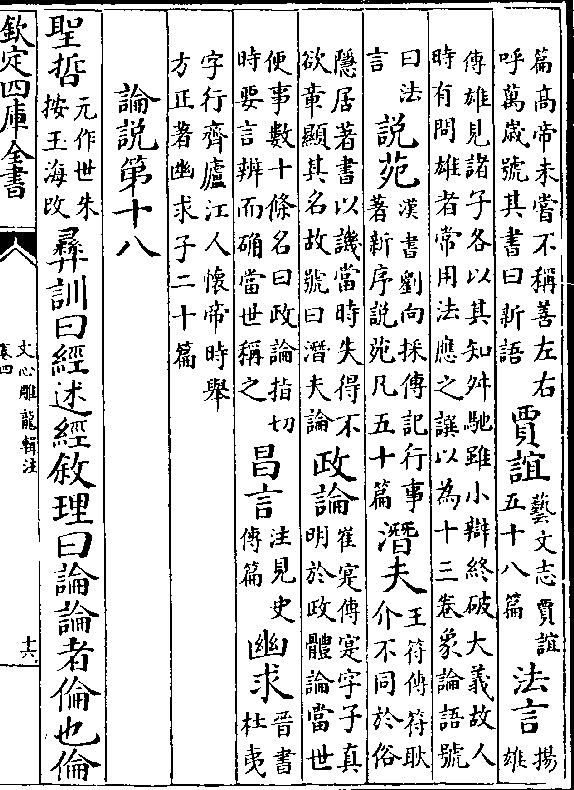 篇高帝未嘗不稱善左右
呼萬歲號其書曰新語
賈誼
藝文志賈誼
五十八篇
法言
揚
雄
傳雄見諸子各以其知舛馳雖小辯終破大義故人
時有問雄者常用法應之譔以為十三卷象論語號
曰法
言
說苑
漢書劉向採傳記行事
著新序說苑凡五十篇
潛夫
王符傳符耿
介不同於俗
隱居著書以譏當時失得不
欲章顯其名故號曰潛夫論
政論
崔寔傳寔字子真
明於政體論當世
便事數十條名曰政論指切
時要言辨而确當世稱之
昌言
注見史
傳篇
幽求
晉書
杜夷
字行齊廬江人懷帝時舉
方正著幽求子二十篇
論說第十八
聖哲
元作世朱
按玉海改
彞訓曰經述經敘理曰論論者倫也倫
欽定四庫全書
文心雕龍輯注
卷四
十六